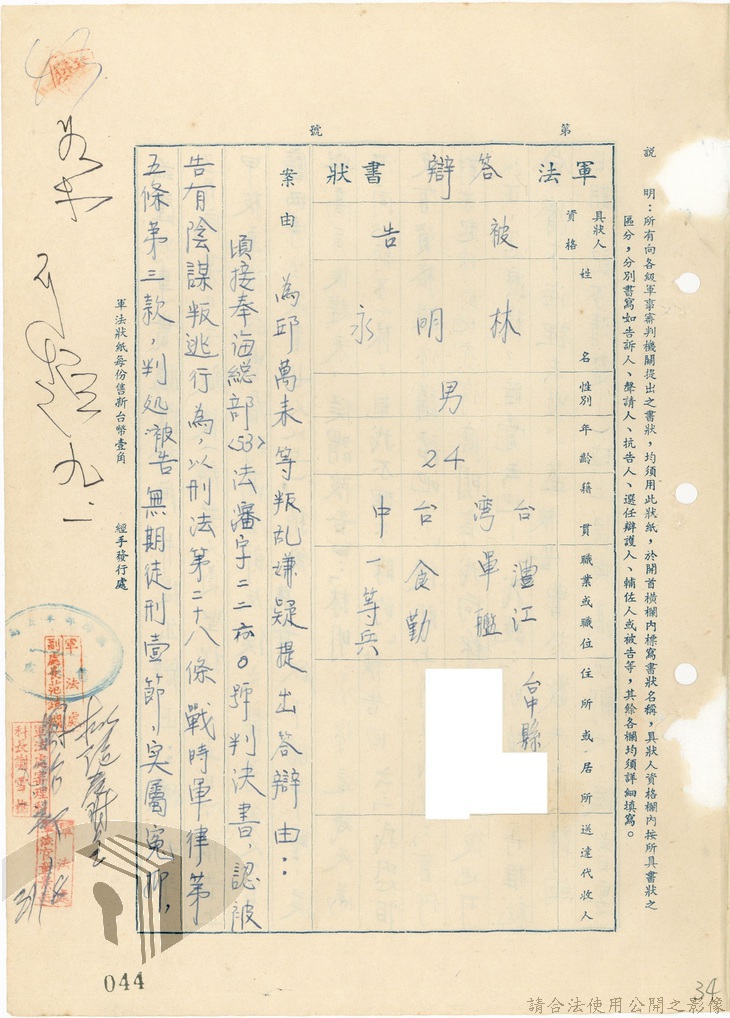 說　明：所有向各級軍事審判機關提出之書狀，均須用此狀紙，於開首橫欄內標寫書狀名稱，具狀人資格欄內按所具書狀之
區分，分別書寫如告訴人、聲請人、抗告人、選任辯護人、輔佐人或被告等，其餘各欄均須詳細填寫。
第　　號
軍法答辯書狀
具狀人資格　被告
姓名　林明永
性別　男
年齡　24
籍貫　台灣台中
職業或職位　澧江軍艦食勤一等兵
住所或居所　台中縣
送達代收人
案由　為邱萬來等叛乱嫌疑提出答辯由：
頃接奉海総部<53>法審字二二六0號判決書，認被
告有陰謀叛逃行為，以刑法第二十八條戰時軍律第
五條第三款，判処被告無期徒刑壹節，実屬冤抑，
軍法狀紙每份售新台幣壹角　經手發行處
044
34
請合法使用公開之影像